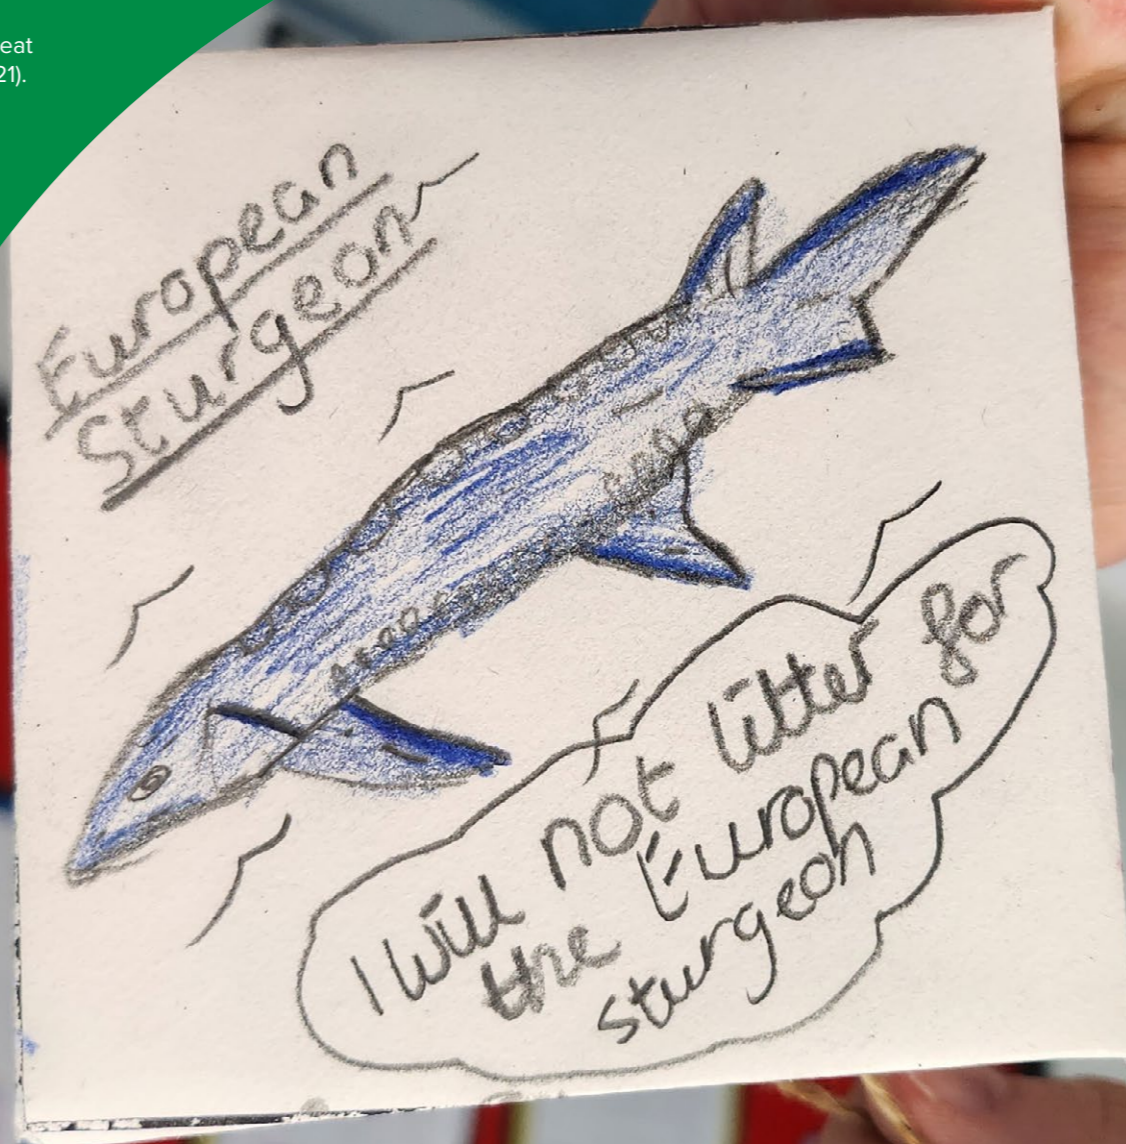 eat
21).
European
Sturgeon
I will not litter for
the European
sturgeon